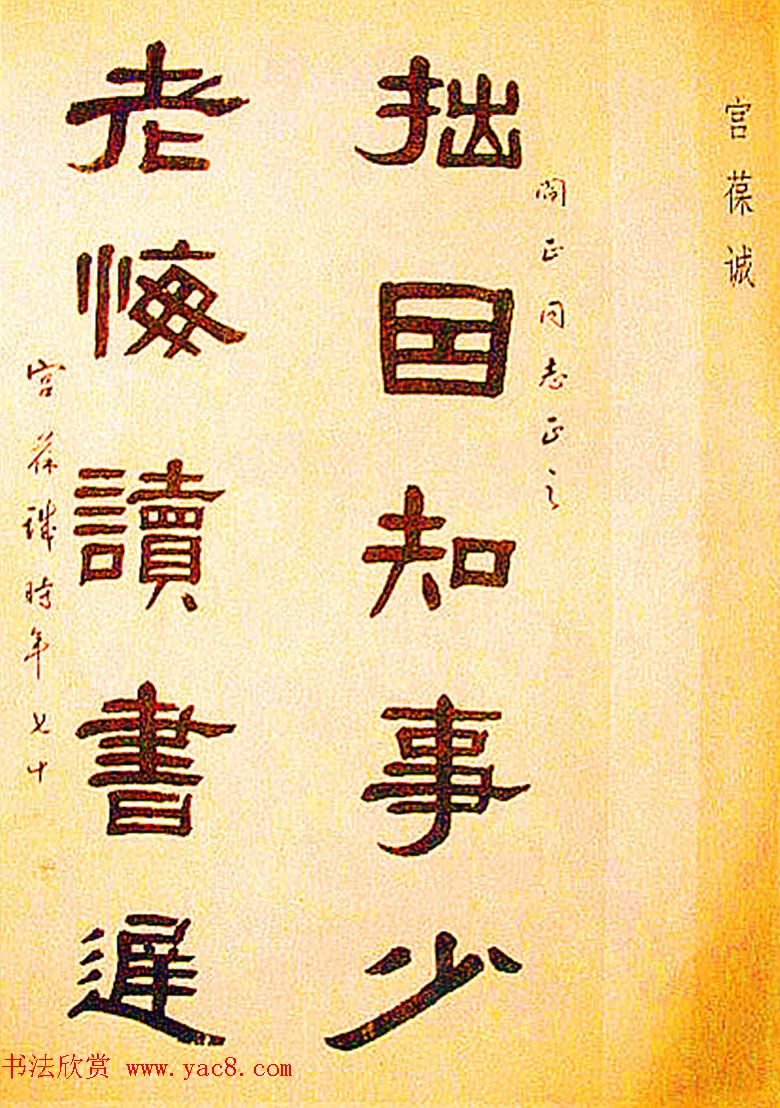 宫葆诚
阎正同志正之
拙因知事少
老悔讀書遲
宫葆诚時年七十
书法欣赏 www.yac8.com